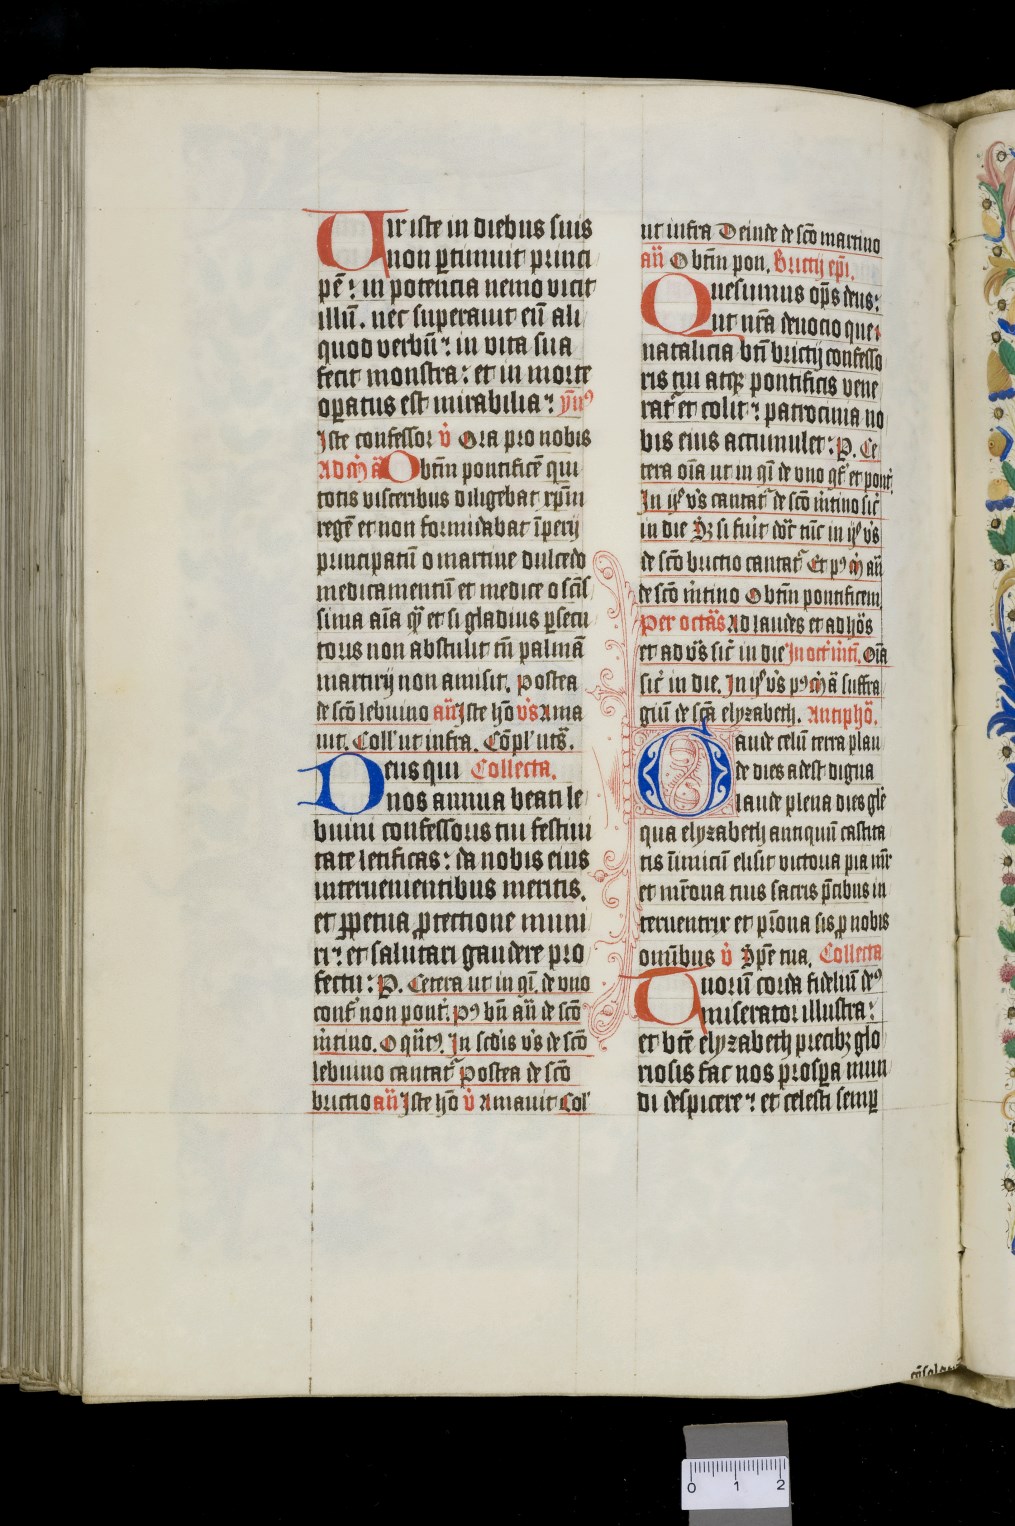 Vir iste in diebus suis
non ꝑtimuit princi
pē: in potencia nemo vicit
illū. nec superauit eū ali
quod verbū: in vita sua
fecit monstra: et in morte
oꝑatus est mirabilia: ym̄ꝰ
Iste confessor v̄ Ora pro nobis
Ad m̄ ā O btīm pontificē qui
totis visceribus diligebat xpm̄
regē et non formidabat īperij
principatū o martine dulcedo
medicamentū et medice o scīs
sima aīa q̄ etsi gladius ꝑsecu
toris non abstulit tn̄ palmā
martirij non amisit. Postea
de sc̄o lebuino an̄ Iste hō v̄s Ama
uit. Coll' ut infra. Cōpl' ut s̄.
Deus qui Collecta.
nos annua beati le
buini confessoris tui festiui
tate letificas: da nobis eius
interuenientibus meritis.
et ꝑpetua ꝓtectione muni
ri: et salutari gaudere pro
fectu: P. Cetera ut in qī. de vno
conf' non pont'. Pꝰ bn̄ an̄ de sc̄o
m̄tino. O In scd̄is v̄s de sc̄o
lebuino cantat' Postea de sc̄o
brictio an̄ Iste hō v̄ Amauit Col'
ut infra Deinde de sc̄o martino
an̄ O btīm pon. Brictij epī.
Quesumus op̄s deus:
ut nr̄a deuocio que
natalicia btī brictij confesso
ris tui atqꝫ pontificis vene
rat' et colit: patrocinia no
bis eius accumulet: P. Ce
tera oīa ut in qī de vno et pont'.
In v̄s cantat' de sc̄o m̄tino sic'
in die Hꝫ si fu'it tūc in v̄s
de sc̄o brictio cantat' Et pꝰ m̄ an̄
de sc̄o m̄tino O btīm pontificem
Per octā̄s Ad laudes et ad hōs
et ad v̄s sic' in die In oct' m̄ti. Oīa
sic' in die. In v̄s pꝰ m̄ ā suffra
giū de scā elyzabeth. Antiphō.
Gaude celū terra plau
de dies adest digna
laude plena dies glē
qua elyzabeth antiquū castita
tis īimicū elisit victoria pia mr̄
et mr̄ona tuis sacris p̄cibus in
teruentrix et pr̄ona sis ꝓ nobis
omībus v̄ Spē tua. Collecta
Tuorū corda fideliū deꝰ
miserator illustra:
et btē elyzabeth precibꝫ glo
riosis fac nos prosꝑa mun
di despicere: et celesti semꝑ